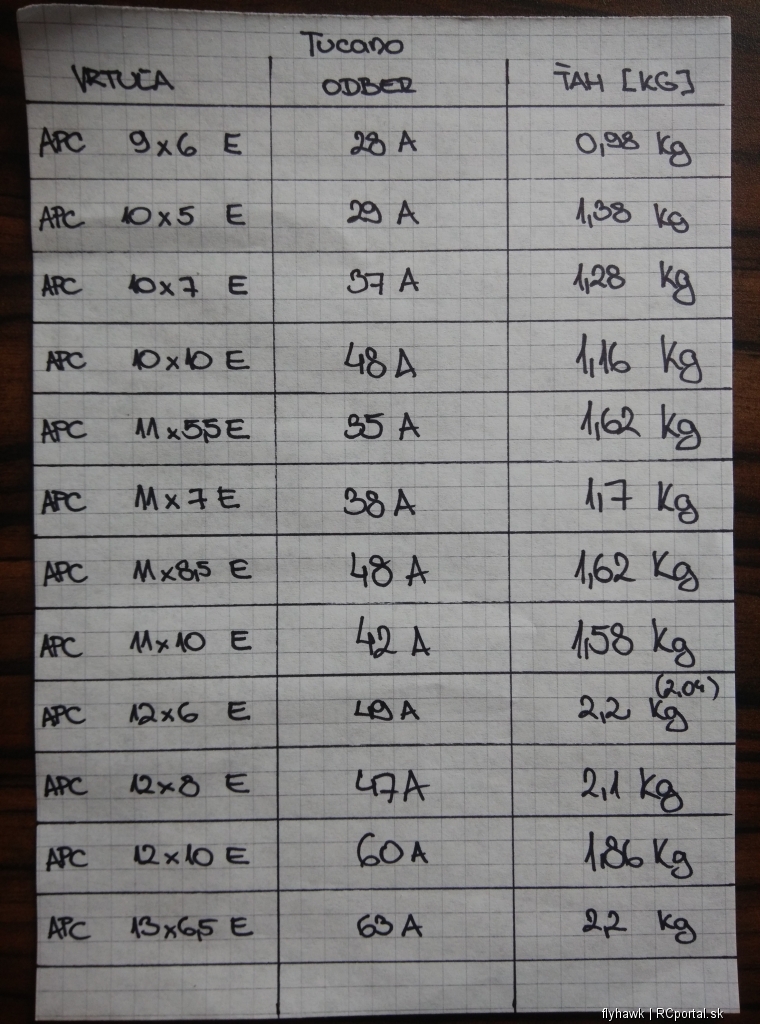 Tucano
VRTUĽA ODBER ŤAH [KG]
APC 9x6 E 28 A 0,98 Kg
APC 10x5 E 29 A 1,38 kg
APC 10x7 E 37 A 1,28 Kg
APC 10x10 E 48 A 1,16 Kg
APC 11x5,5 E 35 A 1,62 Kg
APC 11x7 E 38 A 1,7 Kg
APC 11x8,5 E 48 A 1,62 Kg
APC 11x10 E 42 A 1,58 Kg
APC 12x6 E 49 A 2,2 kg (2,04)
APC 12x8 E 47 A 2,1 Kg
APC 12x10 E 60 A 1,86 Kg
APC 13x6,5 E 63 A 2,2 kg
flyhawk | RCportal.sk